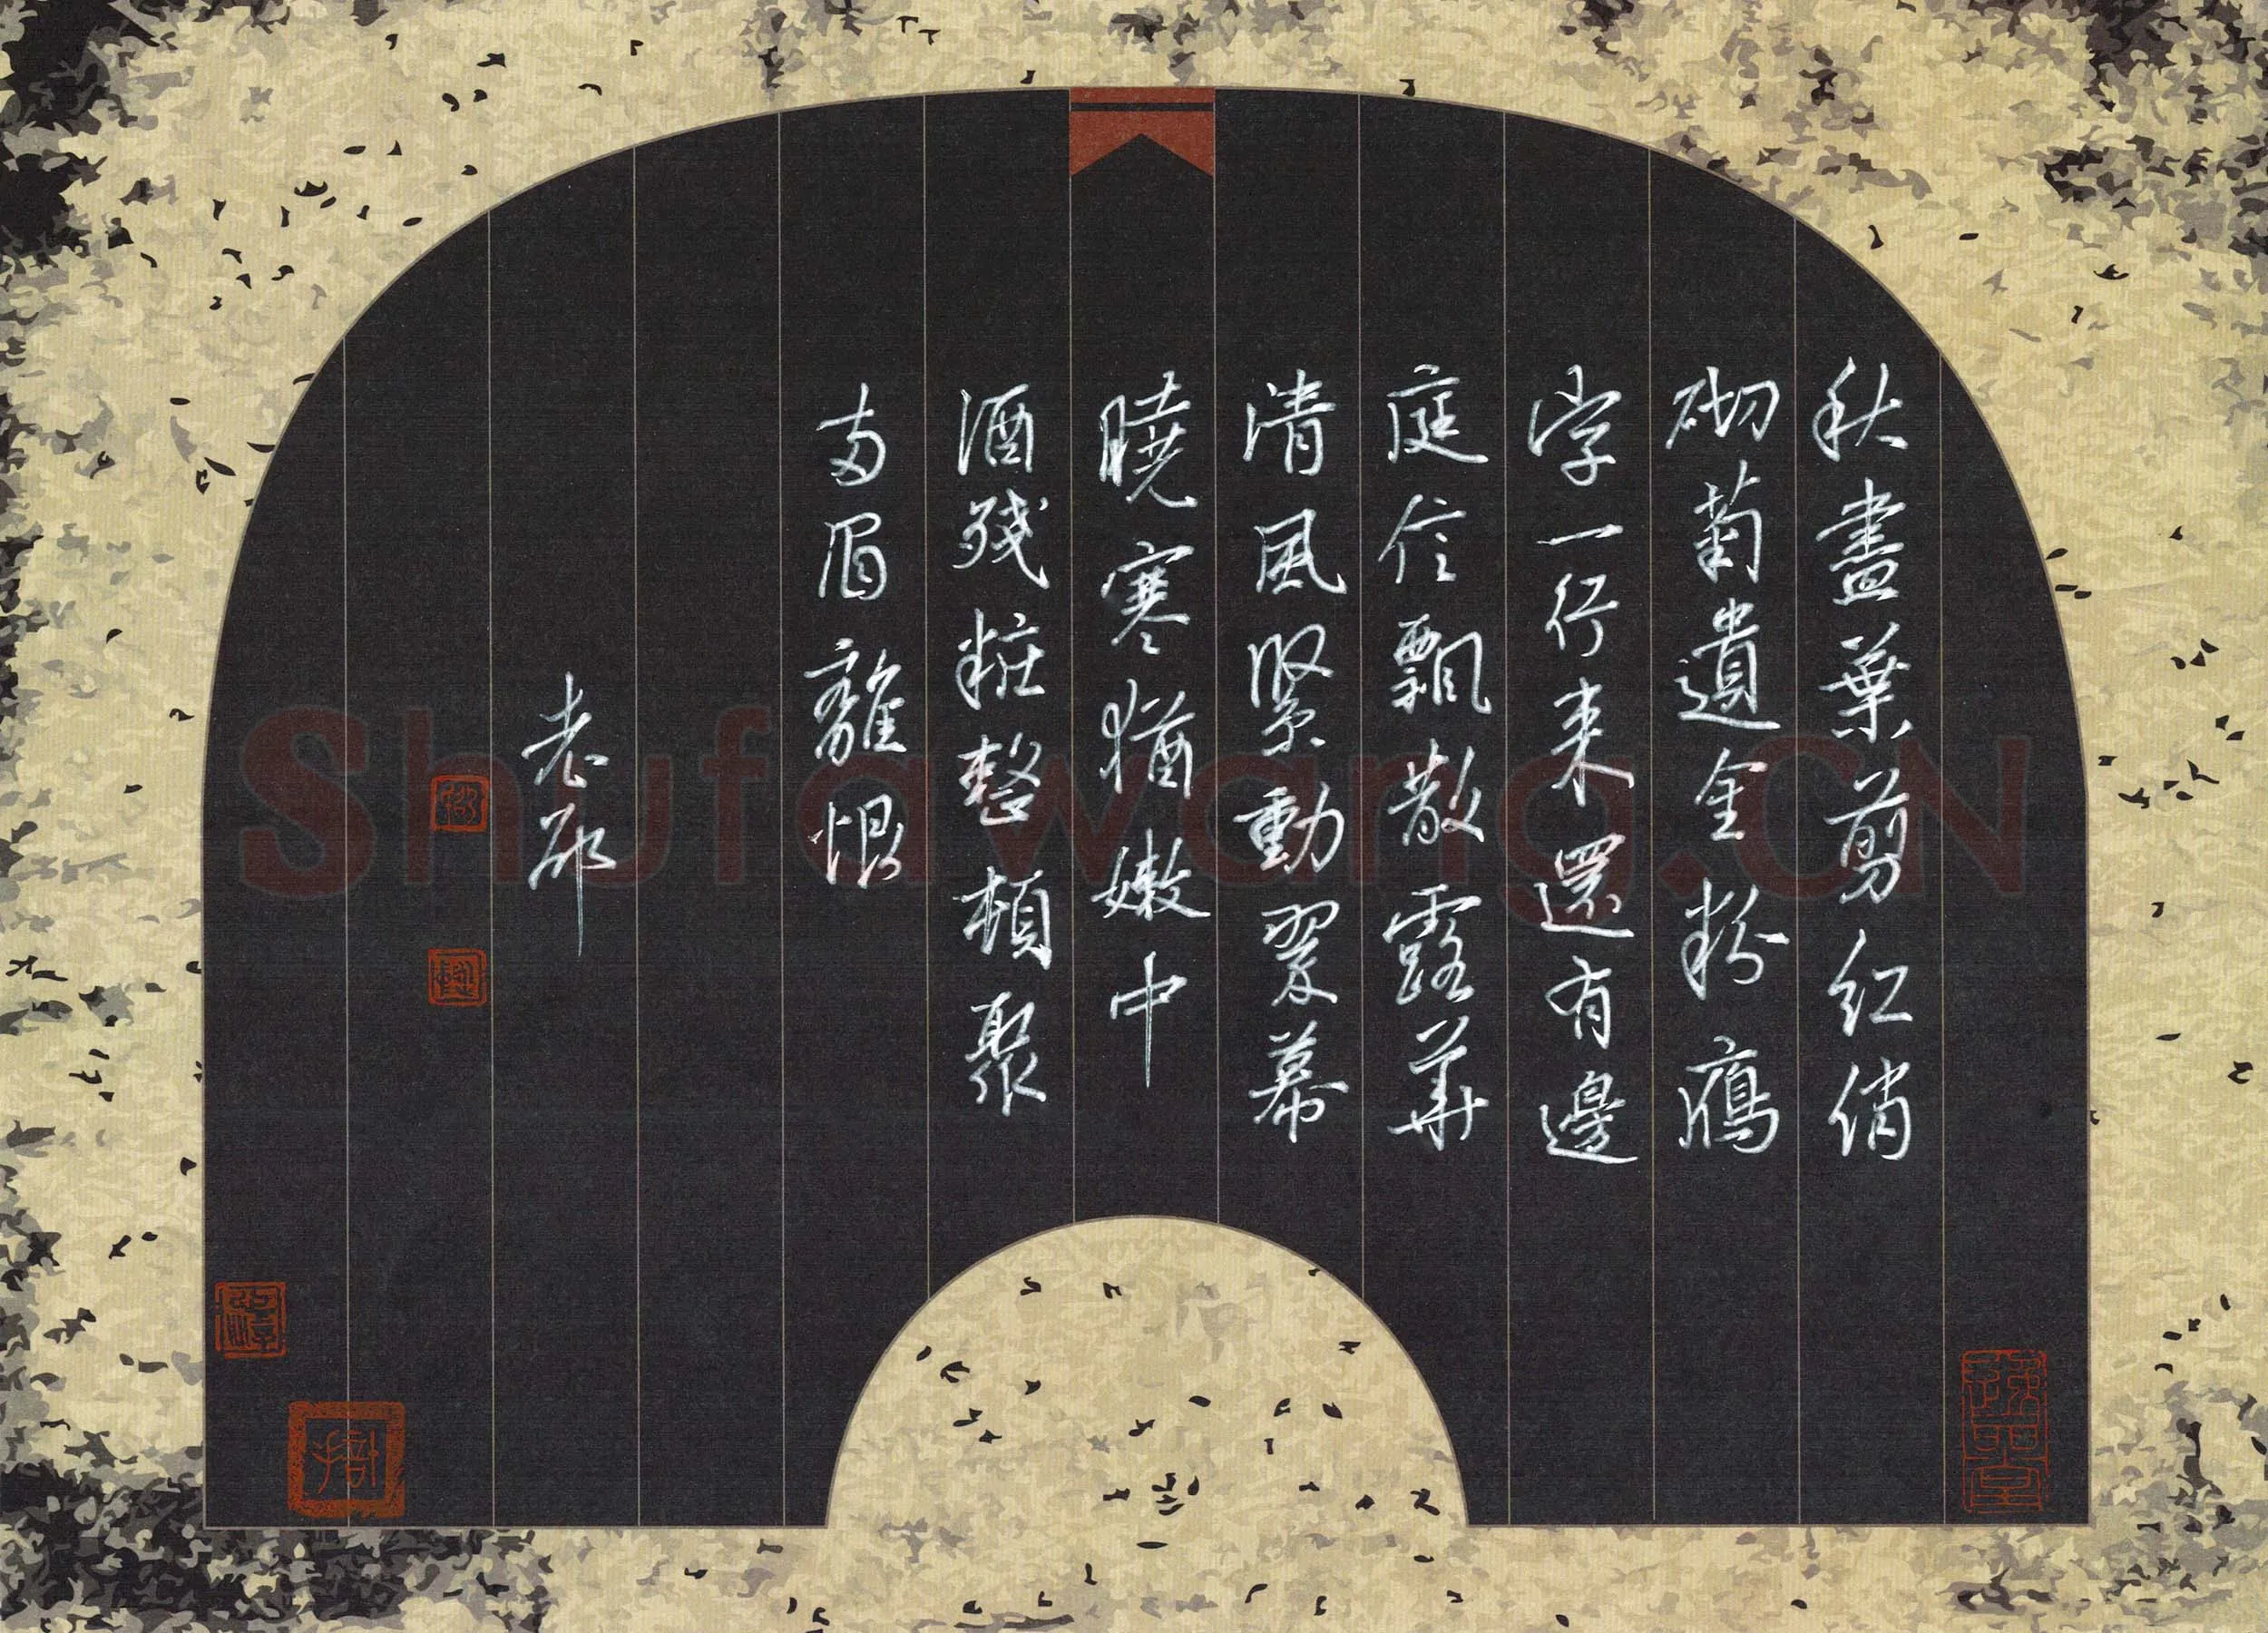 秋盡葉翦紅俏
砌菊遺金粉鴈
字一行来還有邊
庭信飄散露華
清風緊動翠幕
曉寒猶嫩中
酒殘粧整頓聚
两眉離恨
老邪
Shufawang.CN